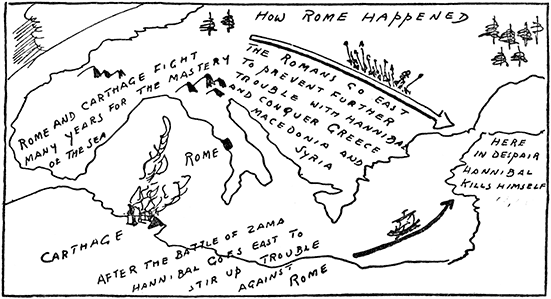 HOW ROME HAPPENED
ROME AND CARTHAGE FIGHT
MANY YEARS FOR THE MASTERY
OF THE SEA
THE ROMANS GO EAST
TO PREVENT FURTHER
TROUBLE WITH HANNIBAL
AND CONQUER GREECE
MACEDONIA AND
SYRIA
ROME
HERE
IN DESPAIR
HANNIBAL
KILLS HIMSELF
CARTHAGE
AFTER THE BATTLE OF ZAMA
HANNIBAL GOES EAST TO
STIR UP TROUBLE
AGAINST ROME